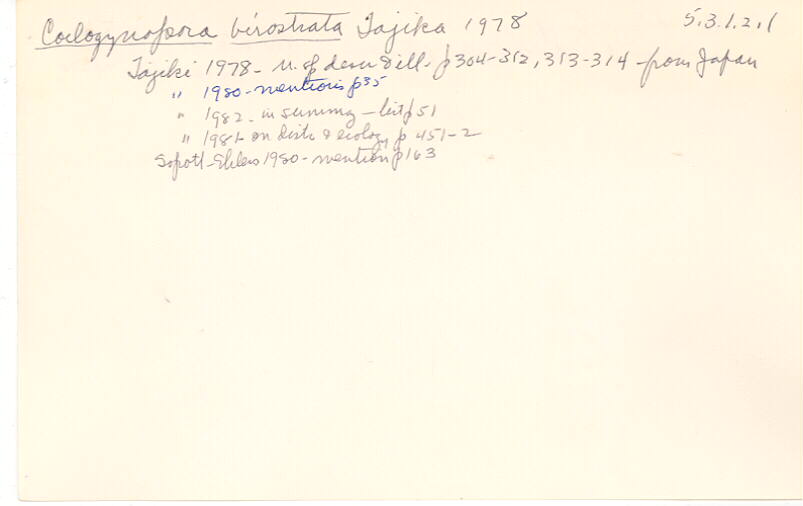 Coelogynopora birostrata Tajika 1978 5.3.1.2.1
Tajiki 1978 - n. sp descr & ill - p 304-312, 313-314 - from Japan
" 1980 - mentions p 35
" 1982 - in summary - list p 51
" 1981 - on distr & ecology p 451-2
Sopott-Ehlers 1980 - mention p 163